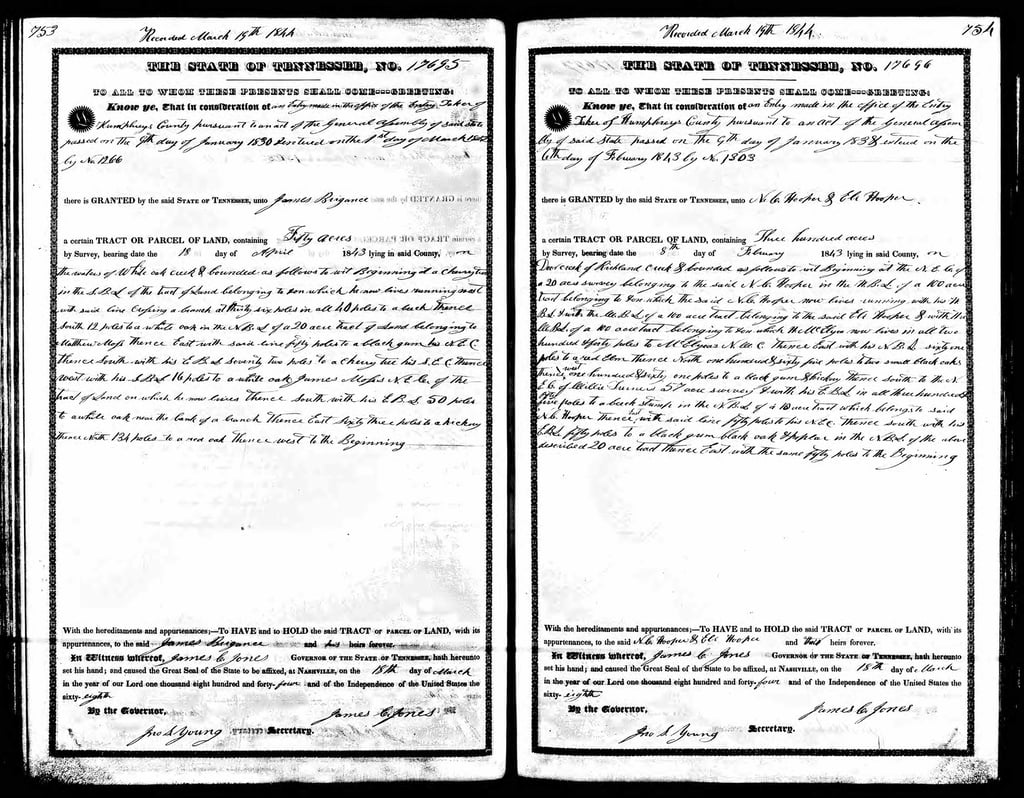 753
Recorded March 19th 1844
THE STATE OF TENNESSEE, NO. 17695
TO ALL TO WHOM THESE PRESENTS SHALL COME---GREETING:
Know ye, That in consideration of an Entry made in the office of the Entry Taker of
Humphreys County pursuant to an act of the General Assembly of said State
passed on the 9th day of January 1830 & entered on the 1st day of March
by No 1266
there is GRANTED by the said STATE OF TENNESSEE, unto James Brigance
a certain TRACT OR PARCEL OF LAND, containing Fifty acres
by Survey, bearing date the 18 day of April 1843 lying in said County, on
the waters of White oak creek & bounded as follows to wit Beginning at a cherry tree
in the S.B.L of the tract of Land belonging to on which he now lives running west
with said line crossing a branch at thirty six poles in all 40 poles to a beech thence
South 12 poles to a white oak in the N.B.L of a 20 acre tract of Land belonging to
Matthew Moss thence East with said line fifty poles to a black gum his N.E.C
thence South with his E.B.L seventy two poles to a cherry tree his S.E.C thence
west with his S.B.L 16 poles to a white oak James Moss N.E.C. of the
tract of Land on which he now lives thence South with his E.B.L 50 poles
to a white oak near the bank of a branch thence East Sixty three poles to a hickory
thence North 134 poles to a red oak thence west to the Beginning
With the hereditaments and appurtenances;—To HAVE and to HOLD the said TRACT OR PARCEL OF LAND, with its
appurtenances, to the said James Brigance and his heirs forever.
In Witness whereof, James C Jones GOVERNOR OF THE STATE OF TENNESSEE, hath hereunto
set his hand; and caused the Great Seal of the State to be affixed, at NASHVILLE, on the 18th day of March
in the year of our Lord one thousand eight hundred and forty-four and of the Independence of the United States the
sixty-eighth
By the Governor, James C Jones
Jno S Young Secretary.
754
Recorded March 19th 1844.
THE STATE OF TENNESSEE, NO. 17696
TO ALL TO WHOM THESE PRESENTS SHALL COME---GREETING:
Know ye, That in consideration of an Entry made in the office of the Entry
Taker of Humphreys County pursuant to an act of the General Assem
bly of said State passed on the 9th day of January 1830 & entered on the
6th day of February 1843 by No. 1303
there is GRANTED by the said STATE OF TENNESSEE, unto N.C. Hooper & Eli Hooper.
a certain TRACT OR PARCEL OF LAND, containing Three hundred acres
by Survey, bearing date the 8th day of February 1843 lying in said County, on
creek of Richland Creek & bounded as follows to wit Beginning at the N.E.C. of
a 20 acre survey belonging to the said N.C. Hooper in the W.B.L. of a 100 acre
tract belonging to & on which the said N.C. Hooper now lives running with his W
B.L. & with the W.B.L. of a 100 acre tract belonging to the said Eli Hooper & with the
W.B.L. of a 100 acre tract belonging to & on which now lives in all two
hundred & forty poles to N.W.C thence East with his N.B.L sixty one
poles to a red Elm thence North one hundred & sixty five poles to two small black oaks
thence west one hundred & sixty one poles to a black gum & hickory thence South to the N.
E.C. of Willis Turners a 57 acre survey & with his E.B.L in all three hundred
five poles to a beech stump in the N.B.L of a acre tract which belongs to said
N.C. Hooper thence East with said line fifty poles to his N.E.C. thence South with his
E.B.L fifty poles to a black gum black oak & poplar in the N.B.L of the above
described 20 acre tract thence East with the same fifty poles to the Beginning
With the hereditaments and appurtenances;—To HAVE and to HOLD the said TRACT OR PARCEL OF LAND, with its
appurtenances, to the said N.C Hooper & Eli Hooper and their heirs forever.
In Witness whereof, James C Jones GOVERNOR OF THE STATE OF TENNESSEE, hath hereunto
set his hand; and caused the Great Seal of the State to be affixed, at NASHVILLE, on the 18th day of March
in the year of our Lord one thousand eight hundred and forty-four and of the Independence of the United States the
sixty-eighth
By the Governor, James C Jones
Jno S Young Secretary.